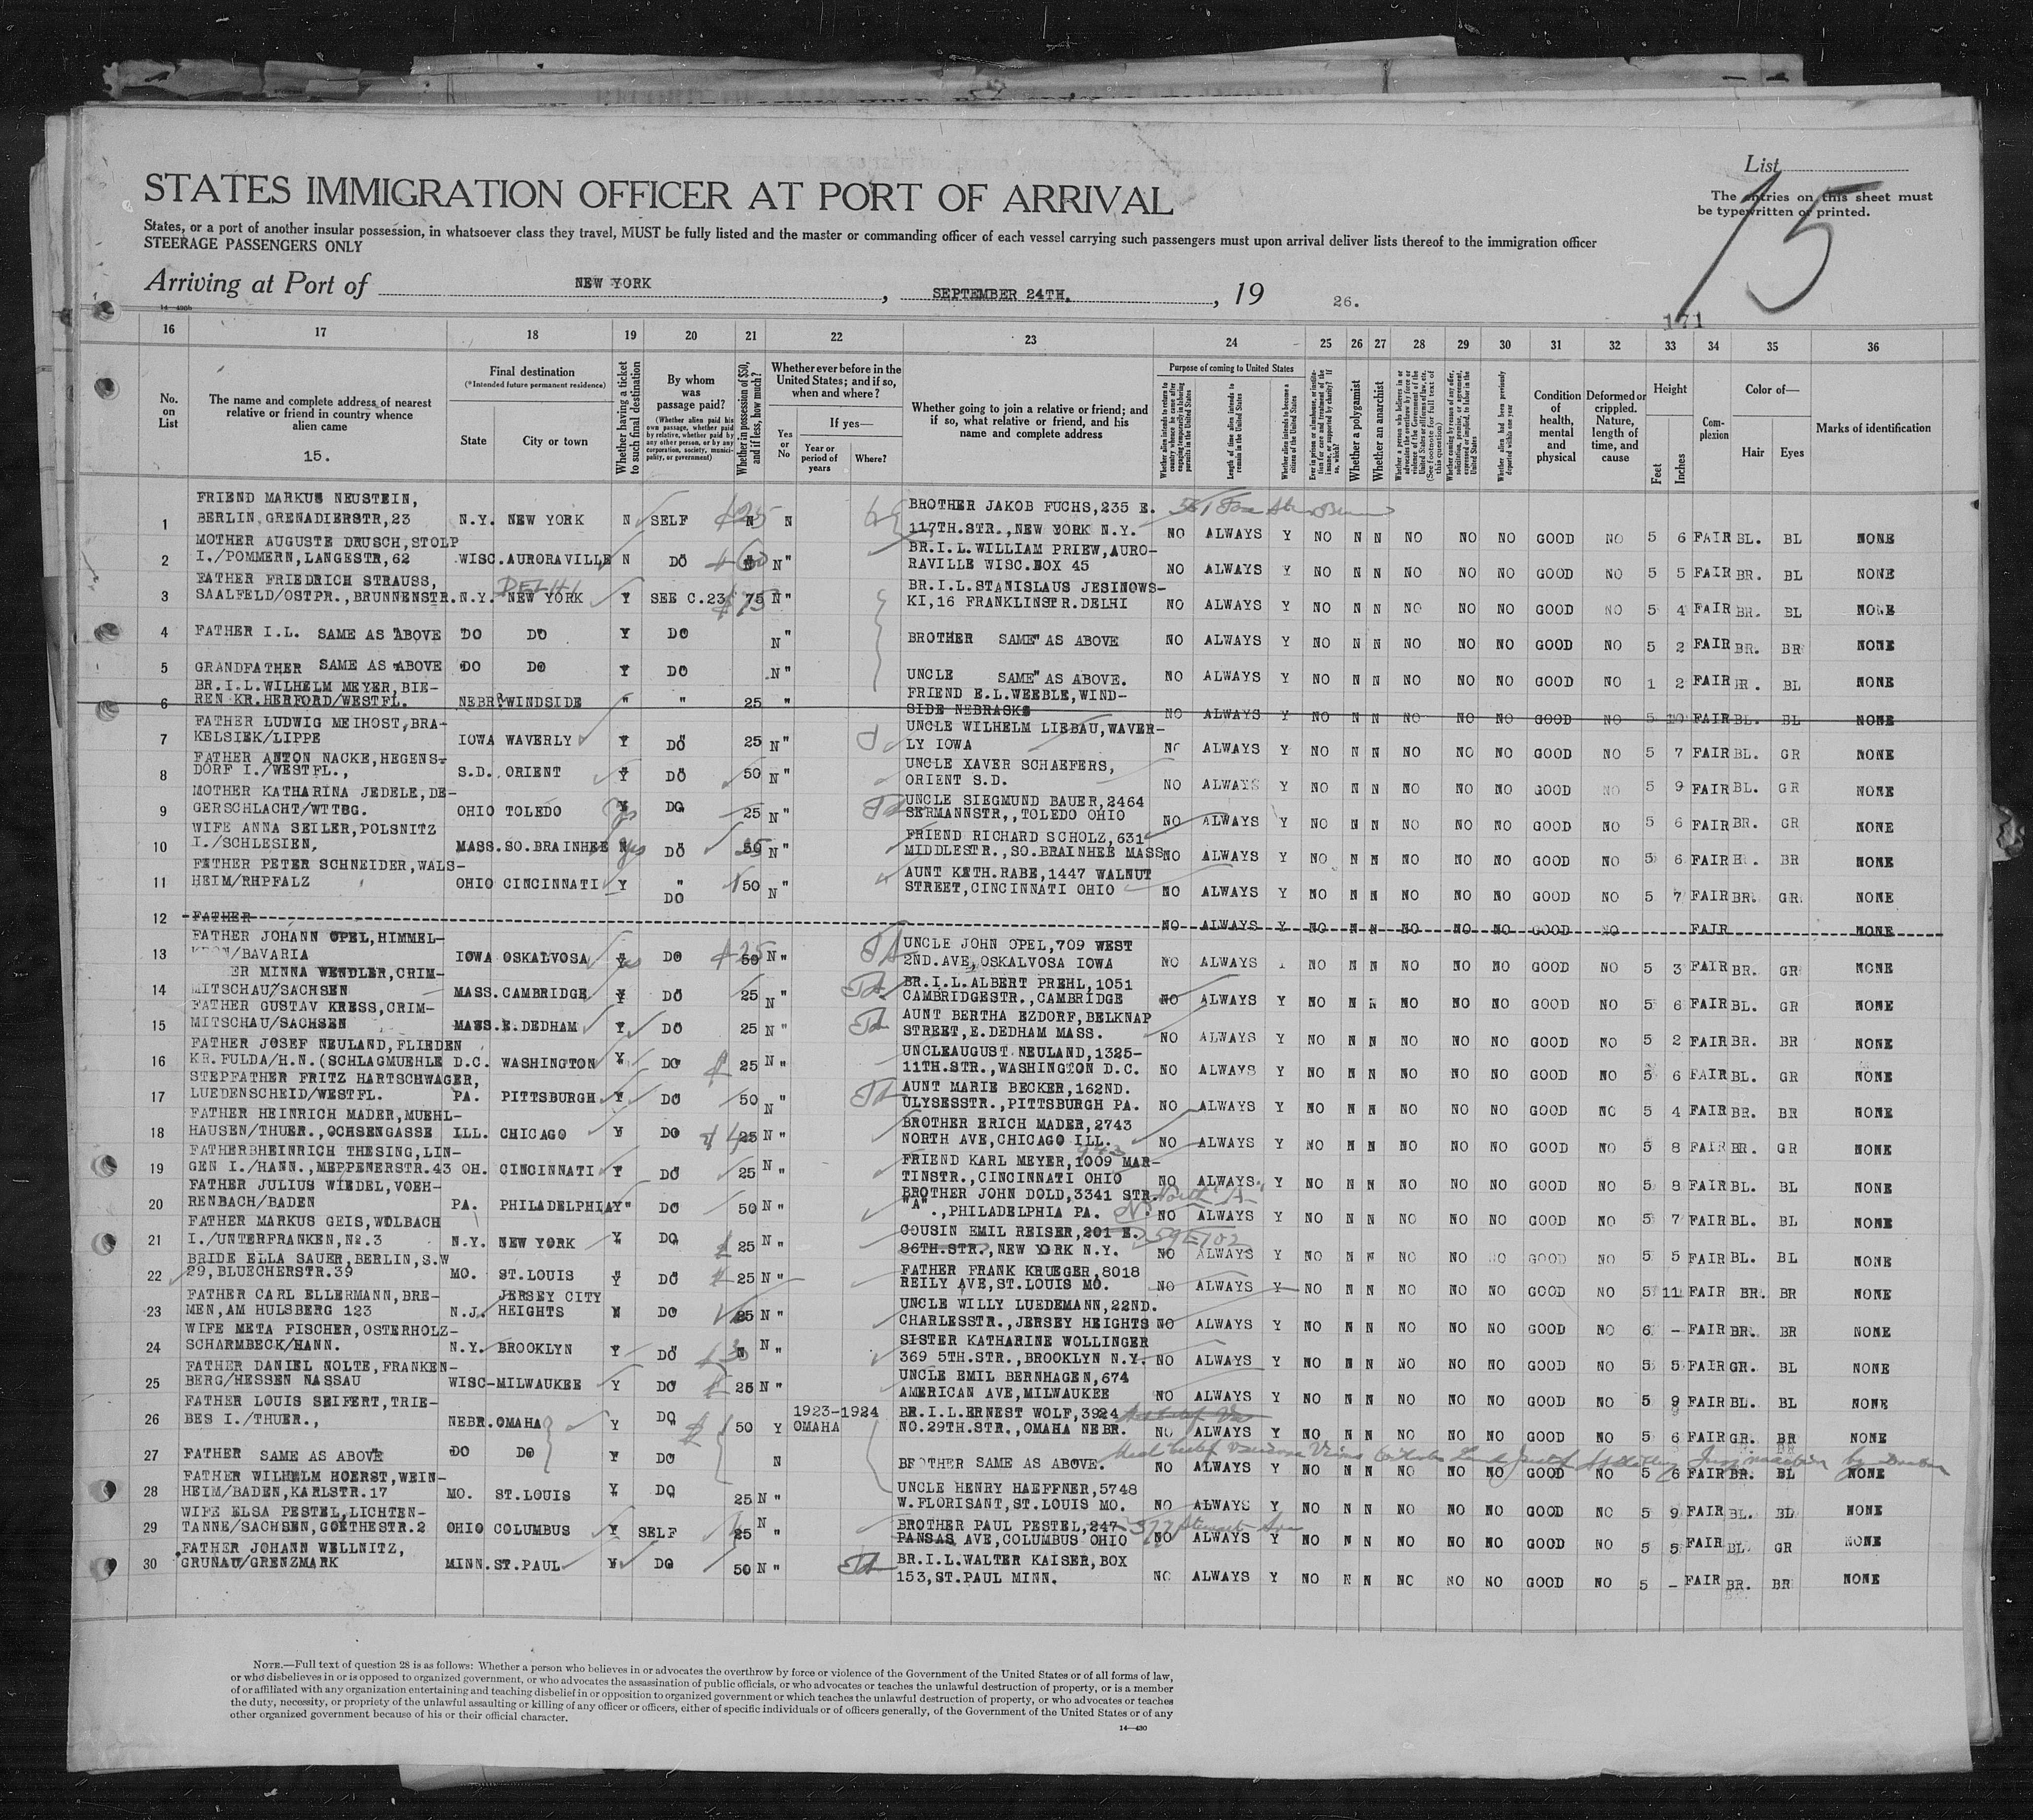 List
15
The entries on this sheet must
be typewritten or printed.
STATES IMMIGRATION OFFICER AT PORT OF ARRIVAL
States, or a port of another insular possession, in whatsoever class they travel, MUST be fully listed and the master or commanding officer of each vessel carrying such passengers must upon arrival deliver lists thereof to the immigration officer
STEERAGE PASSENGERS ONLY
Arriving at Port of NEW YORK, SEPTEMBER 24TH., 19 26.
171
16 17 18 19 20 21 22 23 24 25 26 27 28 29 30 31 32 33 34 35 36
No. on List
The name and complete address of nearest relative or friend in country whence alien came
15.
Final destination
(*Intended future permanent residence)
State
City or town
Whether having a ticket to such final destination
By whom was passage paid?
(Whether alien paid his own passage, whether paid by relative, whether paid by any other person, or by any corporation, society, municipality, or government)
Whether in possession of $50, and if less, how much?
Whether ever before in the United States; and if so, when and where?
Yes or No
If yes—
Year or period of years
Where?
Whether going to join a relative or friend; and if so, what relative or friend, and his name and complete address
Purpose of coming to United States
Length of time alien intends to remain in the United States
Whether alien intends to become a citizen of the United States
Whether a polygamist
Whether an anarchist
Condition of health, mental and physical
Deformed or crippled. Nature, length of time, and cause
Height
Feet
Inches
Complexion
Color of—
Hair
Eyes
Marks of identification
FRIEND MARKUS NEUSTEIN,
1 BERLIN, GRENADIERSTR,23 N.Y. NEW YORK N SELF N N BROTHER JAKOB FUCHS,235 E.
117TH.STR.,NEW YORK N.Y. NO ALWAYS Y NO N N NO NO NO GOOD NO 5 6 FAIR BL. BL NONE
MOTHER AUGUSTE DRUSCH,STOLP
2 I./POMMERN,LANGESTR,62 WISC. AURORAVILLE N DO N" BR.I.L.WILLIAM PRIEW,AURO-
RAVILLE WISC.BOX 45 NO ALWAYS Y NO N N NO NO NO GOOD NO 5 5 FAIR BR. BL NONE
FATHER FRIEDRICH STRAUSS, DELHI
3 SAALFELD/OSTPR.,BRUNNENSTR. N.Y. NEW YORK Y SEE C.23 75 N" BR.I.L.STANISLAUS JESINOWS-
KI,16 FRANKLINSTR.DELHI NO ALWAYS Y NO N N NO NO NO GOOD NO 5 4 FAIR BR. BL NONE
4 FATHER I.L. SAME AS ABOVE DO DO Y DO N" BROTHER SAME AS ABOVE NO ALWAYS Y NO N N NO NO NO GOOD NO 5 2 FAIR BR. BR NONE
5 GRANDFATHER SAME AS ABOVE DO DO Y DO N" UNCLE SAME AS ABOVE. NO ALWAYS Y NO N N NO NO NO GOOD NO 1 2 FAIR BL NONE
BR.I.L.WILHELM MEYER,BIE-
6 REN KR.HERFORD/WESTFL. NEBR. WINDSIDE " " 25 " FRIEND E.L.WEEBLE,WIND-
SIDE NEBRASKS NO ALWAYS Y NO N N NO NO NO GOOD NO 5 10 FAIR BL. BL NONE
FATHER LUDWIG MEIHOST,BRA-
7 KELSIEK/LIPPE IOWA WAVERLY Y DO 25 N" UNCLE WILHELM LIEBAU,WAVER-
LY IOWA NO ALWAYS Y NO N N NO NO NO GOOD NO 5 7 FAIR BL. GR NONE
FATHER ANTON NACKE,HEGENS-
8 DORF I./WESTFL., S.D. ORIENT Y DO 50 N" UNCLE XAVER SCHAEFERS,
ORIENT S.D. NO ALWAYS Y NO N N NO NO NO GOOD NO 5 9 FAIR BL. GR NONE
MOTHER KATHARINA JEDELE,DE-
9 GERSCHLACHT/WTTBG. OHIO TOLEDO Y DO 25 N" UNCLE SIEGMUND BAUER,2464
SERMANNSTR,,TOLEDO OHIO NO ALWAYS Y NO N N NO NO NO GOOD NO 5 6 FAIR BR. GR NONE
WIFE ANNA SEILER,POLSNITZ
10 I./SCHLESIEN, MASS. SO.BRAINHEE N yes DO 50 N" FRIEND RICHARD SCHOLZ,631
MIDDLESTR.,SO.BRAINHEE MASS NO ALWAYS Y NO N N NO NO NO GOOD NO 5 6 FAIR BR NONE
FATHER PETER SCHNEIDER,WALS-
11 HEIM/RHPFALZ OHIO CINCINNATI Y DO 50 N" AUNT KATH.RABE,1447 WALNUT
STREET,CINCINNATI OHIO NO ALWAYS Y NO N N NO NO NO GOOD NO 5 7 FAIR BR. GR. NONE
12 FATHER NO ALWAYS Y NO N N NO NO NO GOOD NO FAIR NONE
FATHER JOHANN OPEL,HIMMEL-
13 /BAVARIA IOWA OSKALVOSA yes DO 50 N" UNCLE JOHN OPEL,709 WEST
2ND.AVE,OSKALVOSA IOWA NO ALWAYS NO N N NO NO NO GOOD NO 5 3 FAIR BR. GR NONE
ER MINNA WENDLER,CRIM-
14 MITSCHAU/SACHSEN MASS. CAMBRIDGE Y DO 25 N" BR.I.L.ALBERT PREHL,1051
CAMBRIDGESTR.,CAMBRIDGE NO ALWAYS Y NO N N NO NO NO GOOD NO 5 6 FAIR BL. GR NONE
FATHER GUSTAV KRESS,CRIM-
15 MITSCHAU/SACHSEN MASS. E.DEDHAM Y DO 25 N" AUNT BERTHA EZDORF,BELKNAP
STREET,E.DEDHAM MASS. NO ALWAYS Y NO N N NO NO NO GOOD NO 5 2 FAIR BR. BR NONE
FATHER JOSEF NEULAND,FLIEDEN
16 KR.FULDA/H.N.(SCHLAGMUEHLE D.C. WASHINGTON Y DO 25 N" UNCLEAUGUST NEULAND,1325-
11TH.STR.,WASHINGTON D.C. NO ALWAYS Y NO N N NO NO NO GOOD NO 5 6 FAIR BL. GR NONE
STEPFATHER FRITZ HARTSCHWAGER,
17 LUEDENSCHEID/WESTFL. PA. PITTSBURGH Y DO 50 N" AUNT MARIE BECKER,162ND.
ULYSESSTR.,PITTSBURGH PA. NO ALWAYS Y NO N N NO NO NO GOOD NO 5 4 FAIR BR. BR NONE
FATHER HEINRICH MADER,MUEHL-
18 HAUSEN/THUER.,OCHSENGASSE ILL. CHICAGO Y DO 25 N" BROTHER ERICH MADER,2743
NORTH AVE,CHICAGO ILL. NO ALWAYS Y NO N N NO NO NO GOOD NO 5 8 FAIR BR. GR NONE
FATHERBHEINRICH THESING,LIN-
19 GEN I./HANN.,MEPPENERSTR.43 OH. CINCINNATI Y DO 25 N" FRIEND KARL MEYER,1009 MAR-
TINSTR.,CINCINNATI OHIO NO ALWAYS Y NO N N NO NO NO GOOD NO 5 8 FAIR BL. BL NONE
FATHER JULIUS WIEDEL,VOEH-
20 RENBACH/BADEN PA. PHILADELPHIA Y" DO 50 N" BROTHER JOHN DOLD,3341 STR. North A
"A".,PHILADELPHIA PA. NO ALWAYS Y NO N N NO NO NO GOOD NO 5 7 FAIR BL. BL NONE
FATHER MARKUS GEIS,WOLBACH
21 I./UNTERFRANKEN,No.3 N.Y. NEW YORK Y DO 25 N" COUSIN EMIL REISER,201 E.
86TH.STR.,NEW YORK N.Y. NO ALWAYS Y NO N N NO NO NO GOOD NO 5 5 FAIR BL. BL NONE
BRIDE ELLA SAUER,BERLIN,S.W
22 29,BLUECHERSTR.39 MO. ST.LOUIS Y DO 25 N" FATHER FRANK KRUEGER,8018
REILY AVE,ST.LOUIS MO. NO ALWAYS Y NO N N NO NO NO GOOD NO 5 11 FAIR BR. BR NONE
FATHER CARL ELLERMANN,BRE- JERSEY CITY
23 MEN,AM HULSBERG 123 N.J. HEIGHTS N DO 25 N" UNCLE WILLY LUEDEMANN,22ND.
CHARLESSTR.,JERSEY HEIGHTS NO ALWAYS Y NO N N NO NO NO GOOD NO 6 - FAIR BR. BR NONE
WIFE META FISCHER,OSTERHOLZ-
24 SCHARMBECK/HANN. N.Y. BROOKLYN Y DO N N" SISTER KATHARINE WOLLINGER
369 5TH.STR.,BROOKLYN N.Y. NO ALWAYS Y NO N N NO NO NO GOOD NO 5 5 FAIR GR. BL NONE
FATHER DANIEL NOLTE,FRANKEN-
25 BERG/HESSEN NASSAU WISC- MILWAUKEE Y DO 25 N" UNCLE EMIL BERNHAGEN,674
AMERICAN AVE,MILWAUKEE NO ALWAYS Y NO N N NO NO NO GOOD NO 5 9 FAIR BL. BL NONE
FATHER LOUIS SEIFERT,TRIE-
26 BES I./THUER., NEBR. OMAHA Y DO 50 Y 1923-1924 OMAHA BR.I.L.ERNEST WOLF,3924
NO.29TH.STR.,OMAHA NEBR. NO ALWAYS Y NO N N NO NO NO GOOD NO 5 6 FAIR GR. BR NONE
27 FATHER SAME AS ABOVE DO DO Y DO N BROTHER SAME AS ABOVE. NO ALWAYS Y NO N N NO NO NO GOOD NO 5 6 FAIR BR. BL NONE
FATHER WILHELM HOERST,WEIN-
28 HEIM/BADEN,KARLSTR.17 MO. ST.LOUIS Y DO 25 N" UNCLE HENRY HAEFFNER,5748
W.FLORISANT,ST.LOUIS MO. NO ALWAYS Y NO N N NO NO NO GOOD NO 5 9 FAIR BL. BL NONE
WIFE ELSA PESTEL,LICHTEN-
29 TANNE/SACHSEN,GOETHESTR.2 OHIO COLUMBUS Y SELF 25 N " BROTHER PAUL PESTEL,247
PANSAS AVE,COLUMBUS OHIO NO ALWAYS Y NO N N NO NO NO GOOD NO 5 5 FAIR BL. GR NONE
FATHER JOHANN WELLNITZ,
30 GRUNAU/GRENZMARK MINN. ST.PAUL Y DO 50 N" BR.I.L.WALTER KAISER,BOX
153,ST.PAUL MINN. NO ALWAYS Y NO N N NO NO NO GOOD NO 5 - FAIR BR. BR NONE
NOTE.—Full text of question 28 is as follows: Whether a person who believes in or advocates the overthrow by force or violence of the Government of the United States or of all forms of law,
or who disbelieves in or is opposed to organized government, or who advocates the assassination of public officials, or who advocates or teaches the unlawful destruction of property, or is a member
of or affiliated with any organization entertaining and teaching disbelief in or opposition to organized government or which teaches the unlawful destruction of property, or who advocates or teaches
the duty, necessity, or propriety of the unlawful assaulting or killing of any officer or officers, either of specific individuals or of officers generally, of the Government of the United States or of any
other organized government because of his or their official character.
14—430